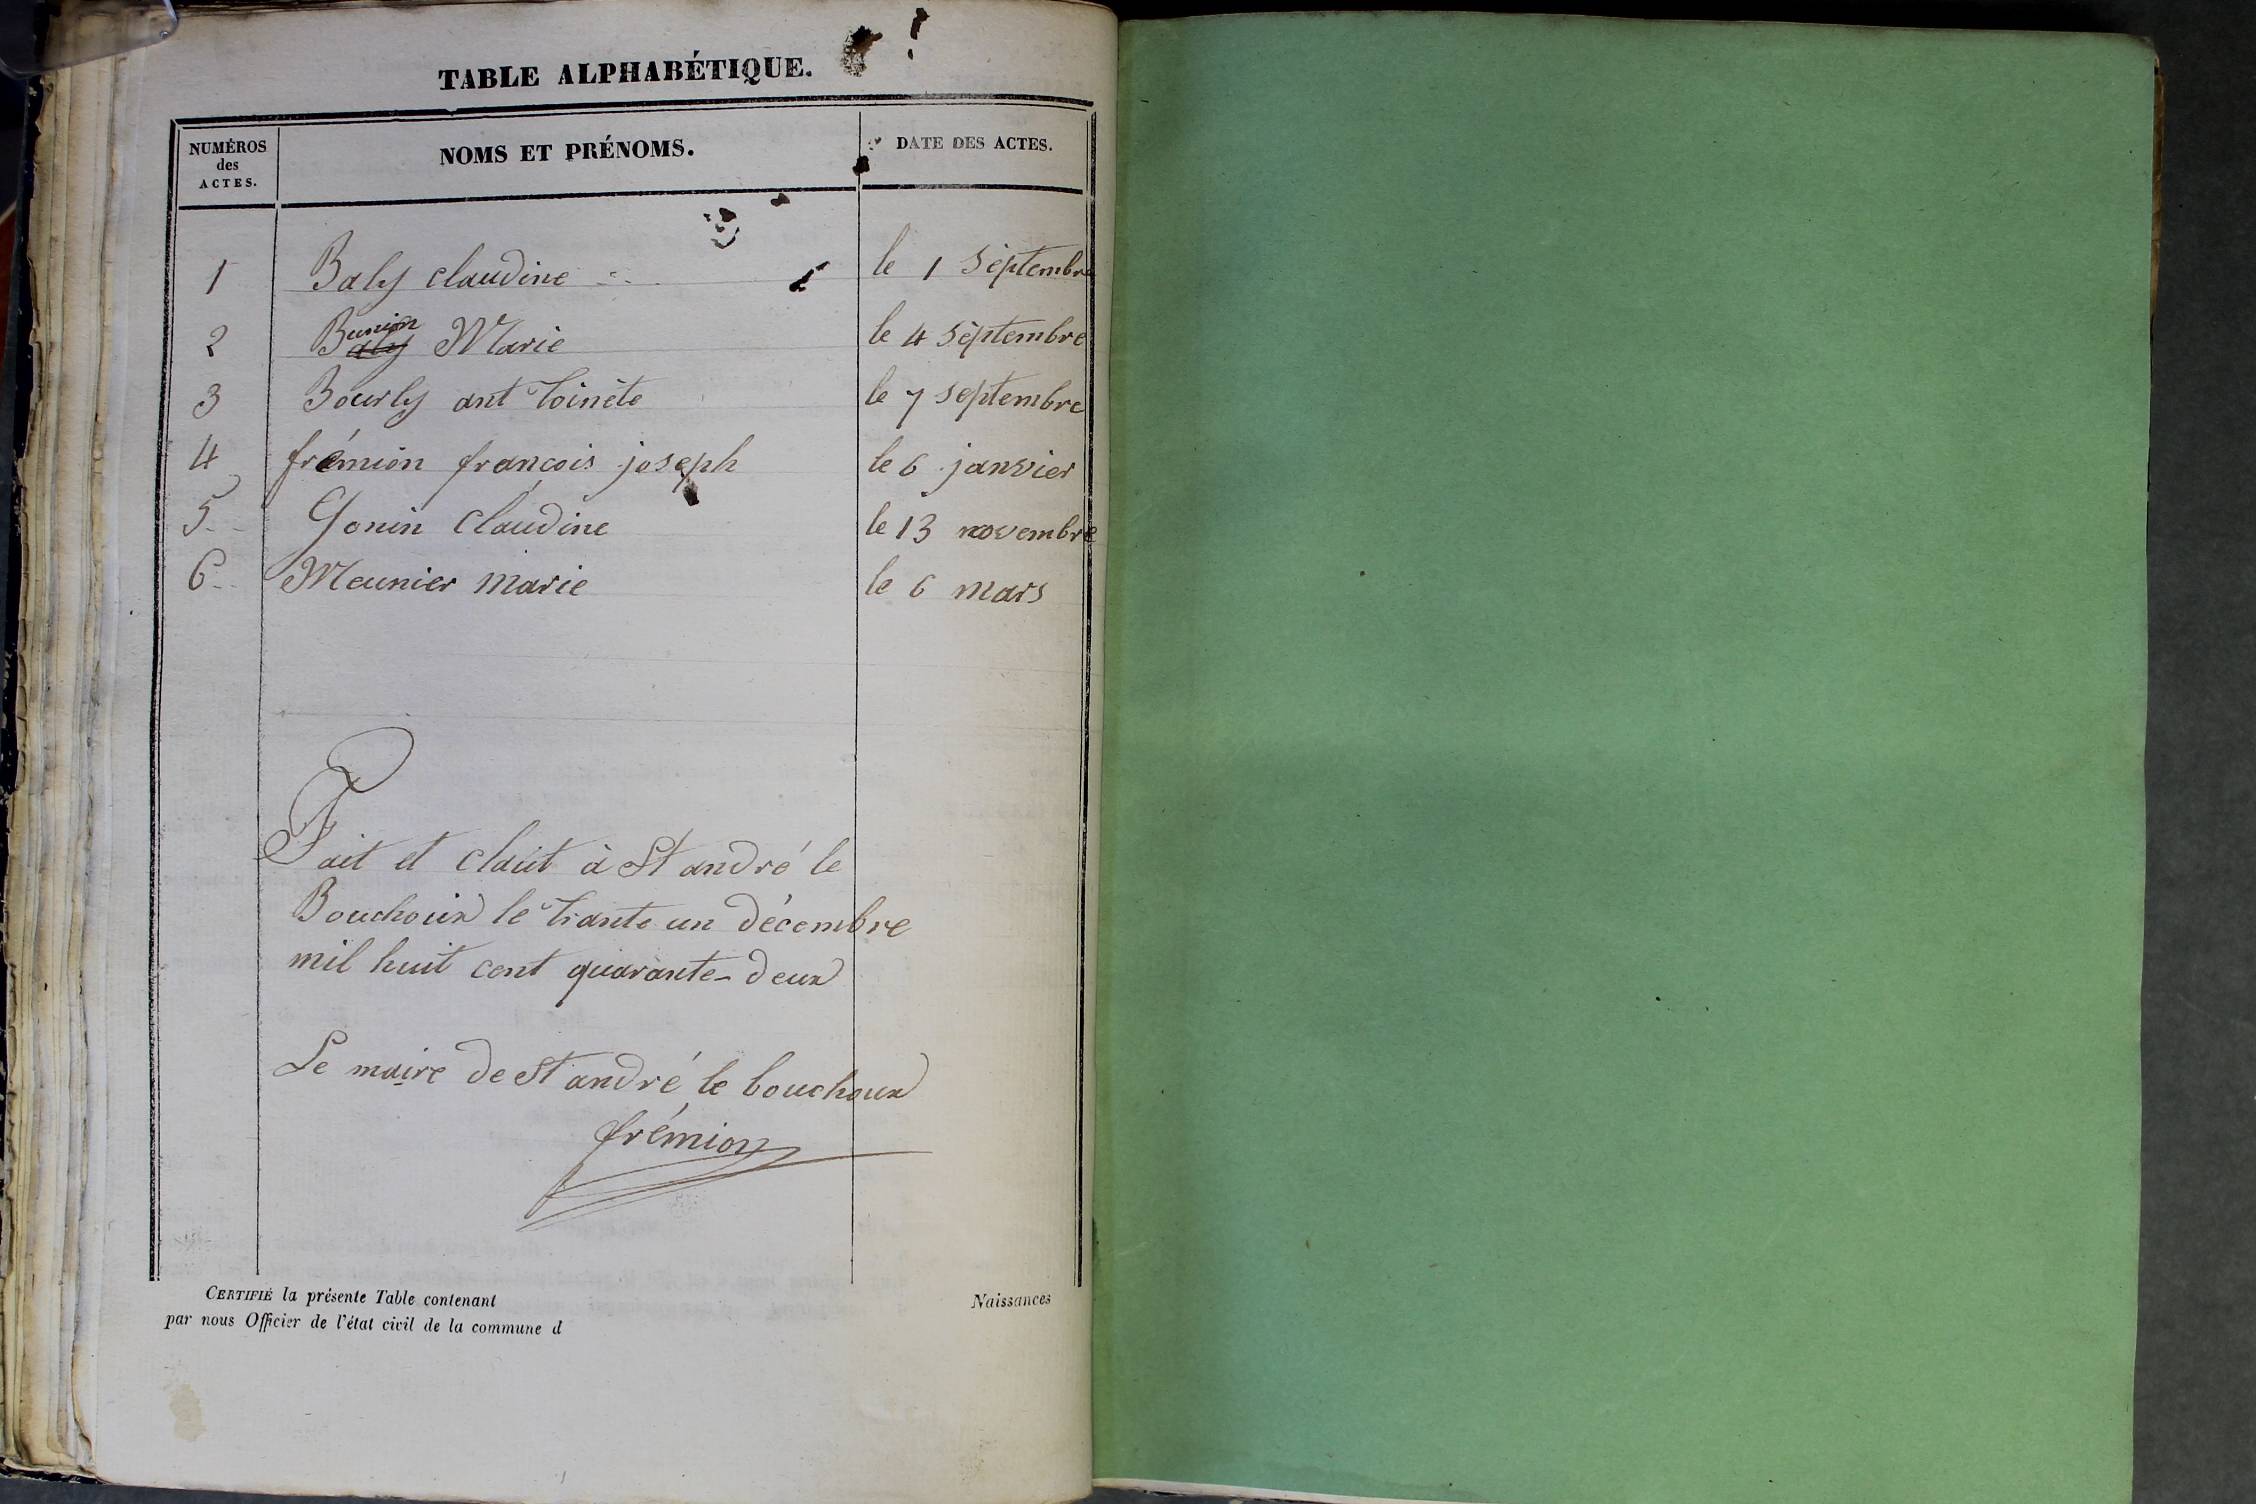 TABLE ALPHABÉTIQUE.
NUMÉROS des ACTES. NOMS ET PRÉNOMS. DATE DES ACTES.
1 Baly claudine le 1 septembre
2 Bunion Marie le 4 septembre
3 Bourly ant toinete le 7 septembre
4 frémion francois joseph le 6 janvier
5 Gonin claudine le 13 novembre
6 Meunier marie le 6 mars
Fait et claût à St andré le
Bouchoux le trante un décembre
mil huit cent quarante-deux
Le maire de St andré le bouchoux
frémion
CERTIFIÉ la présente Table contenant Naissances
par nous Officier de l'état civil de la commune d